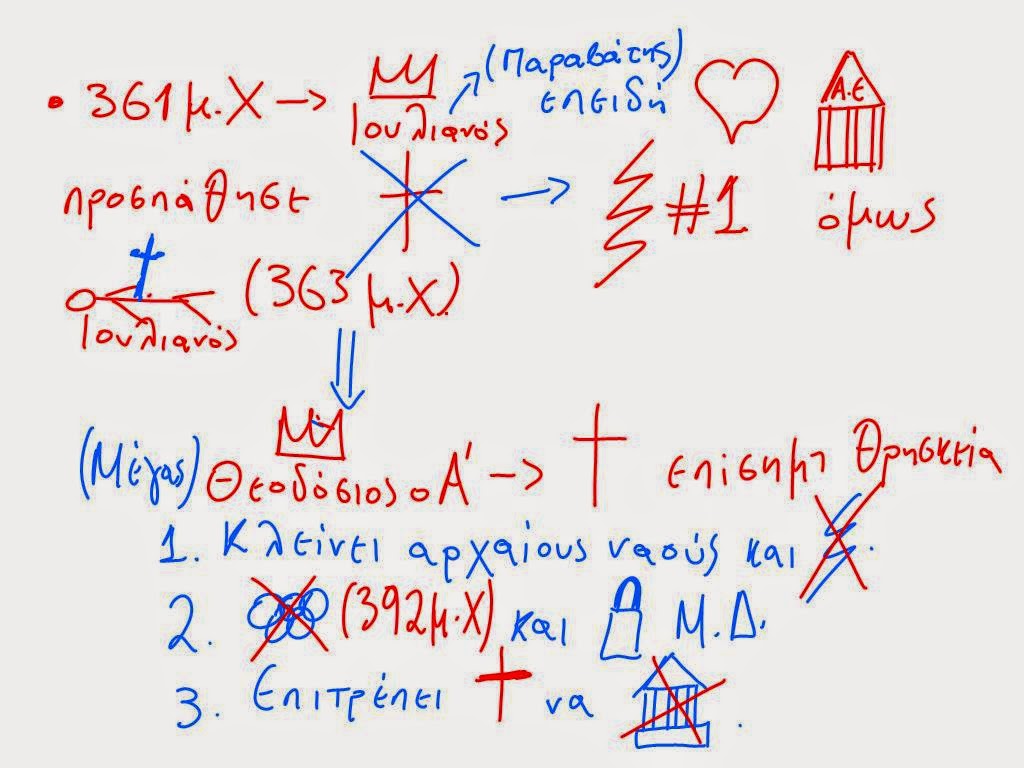 • 361 μ.Χ → Ιουλιανός (Παραβάτης) επειδή Α.Ε
προσπάθησε → #1 όμως
Ιουλιανός (363 μ.Χ)
(Μέγας) Θεοδόσιος ο Α' → επίσημη θρησκεία
1. Κλείνει αρχαίους ναούς και .
2. (392 μ.Χ) και Μ.Δ.
3. Επιτρέπει να .